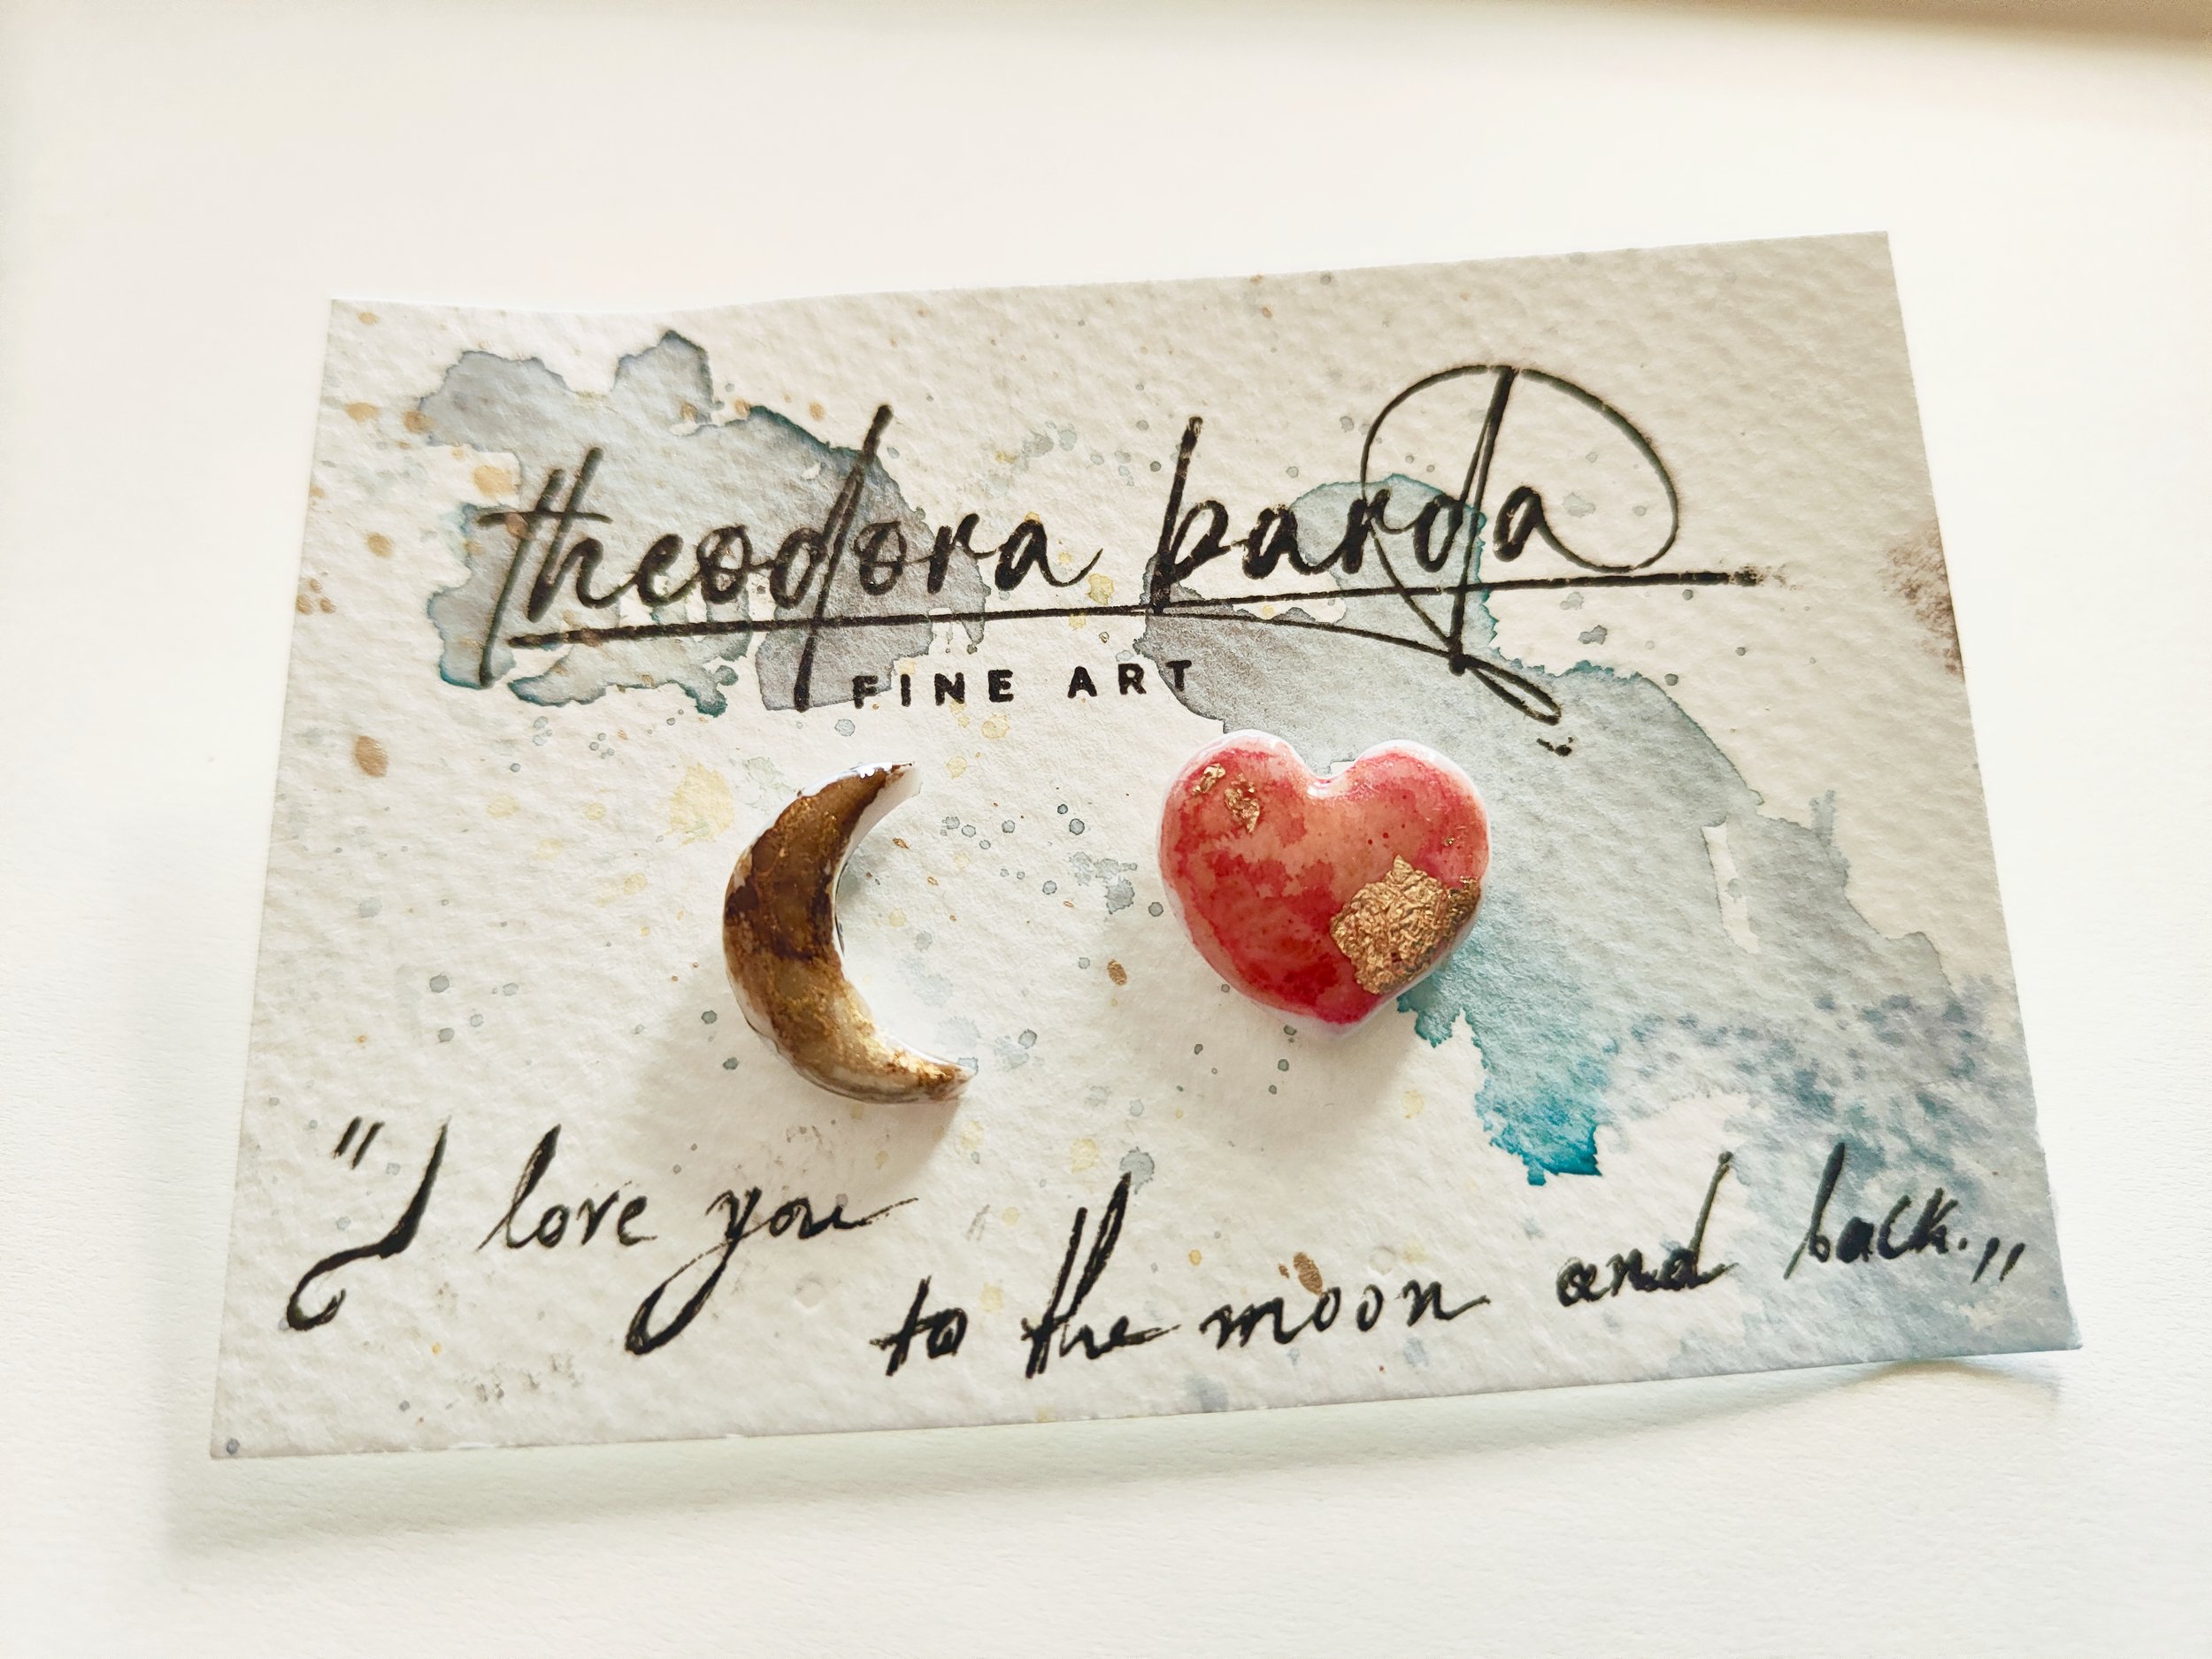 theodora barda
FINE ART
"I love you
to the moon and back.„